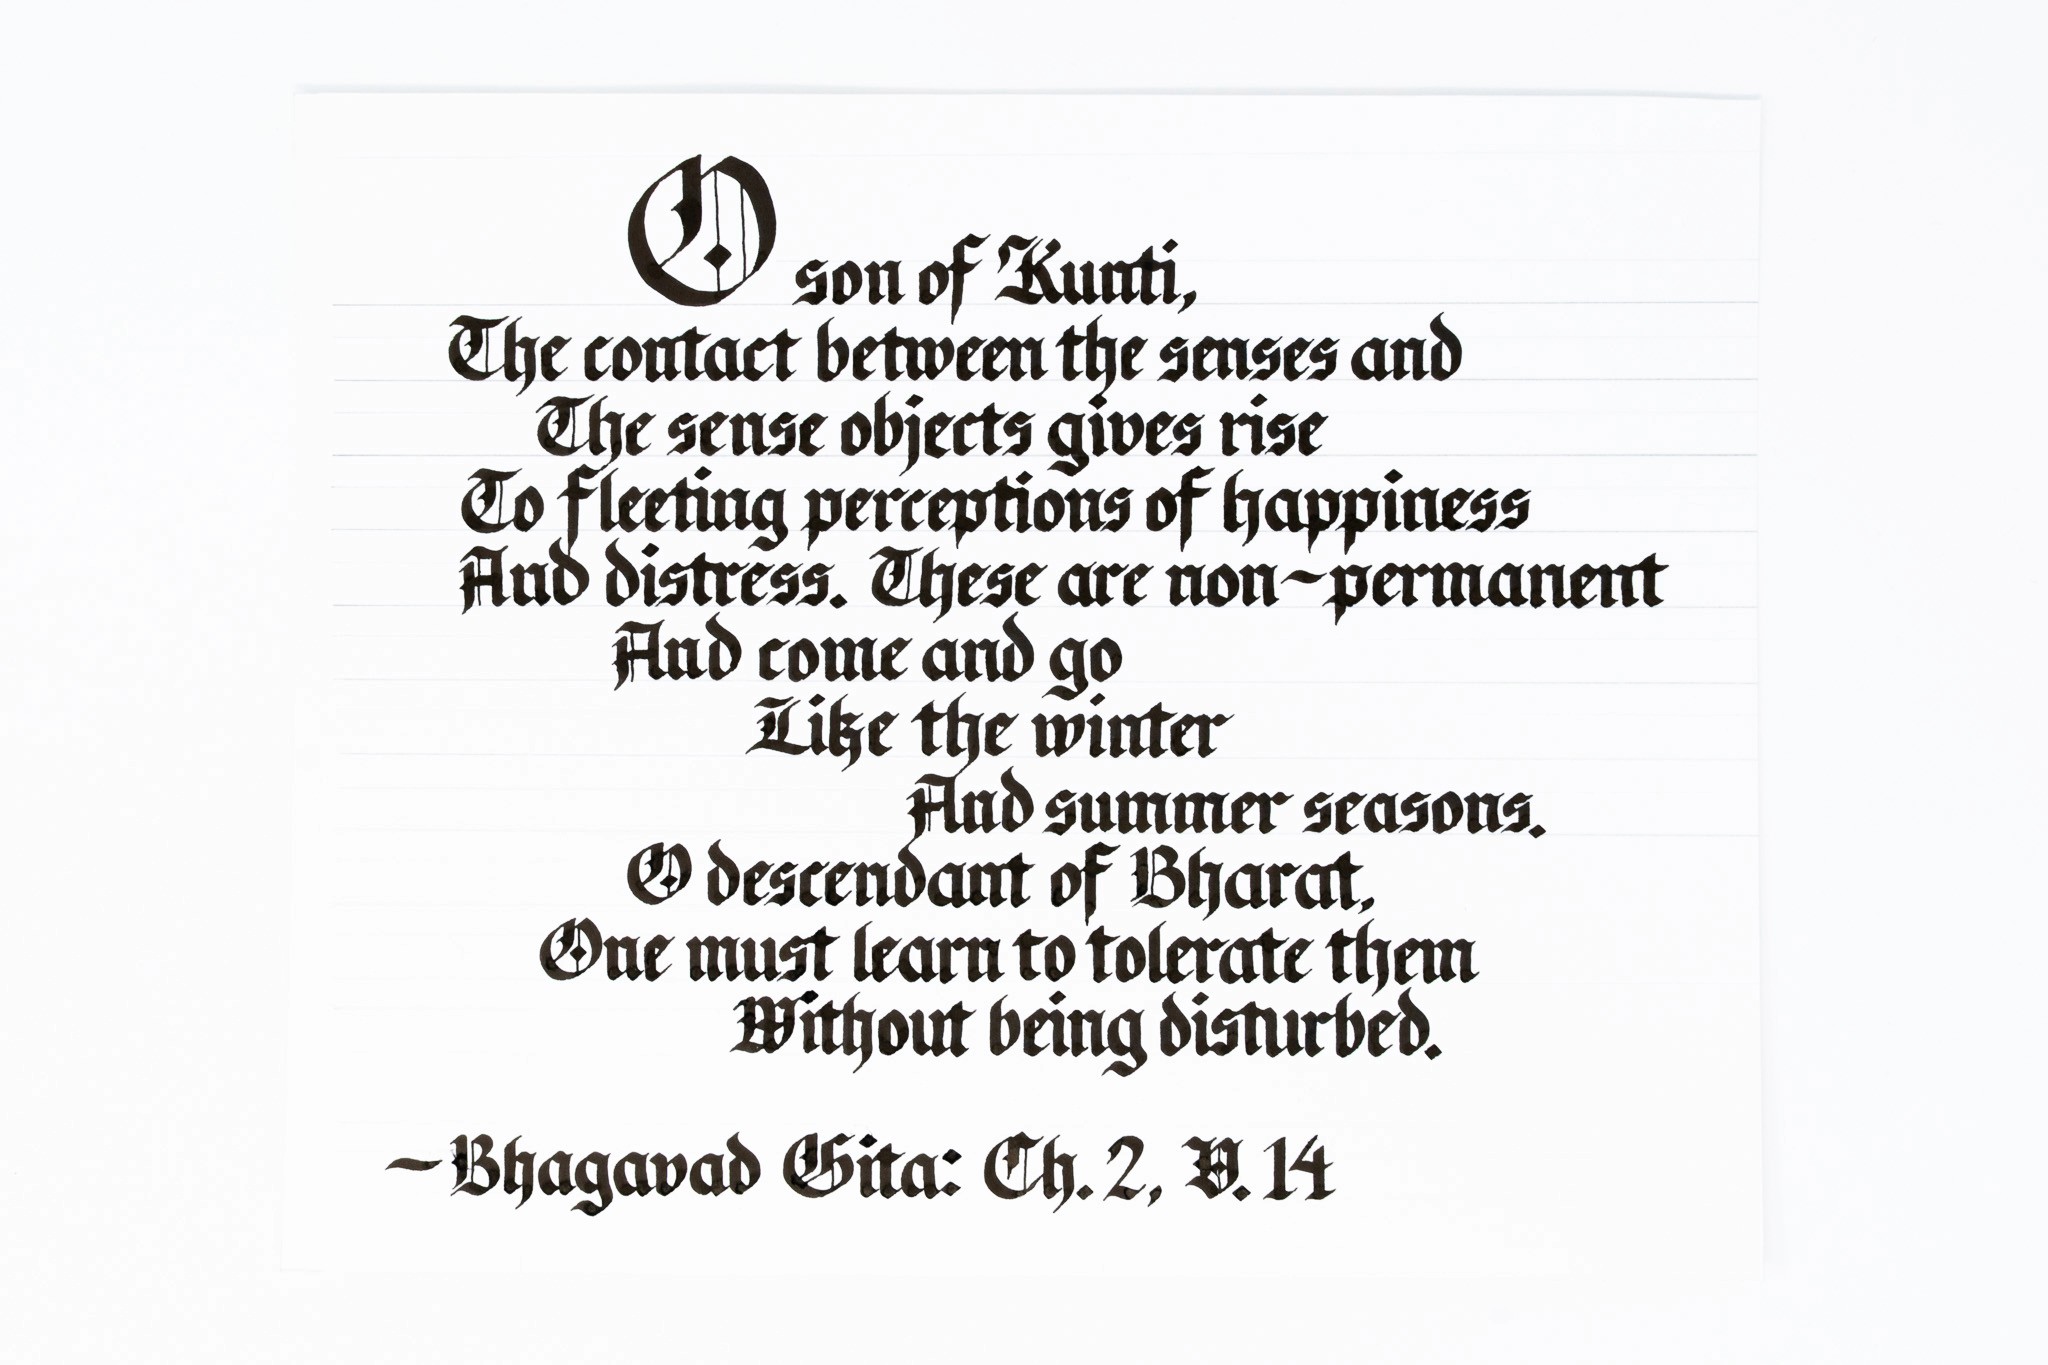 O son of Kunti,
The contact between the senses and
The sense objects gives rise
To fleeting perceptions of happiness
And distress. These are non-permanent
And come and go
Like the winter
And summer seasons.
O descendant of Bharat,
One must learn to tolerate them
Without being disturbed.
~Bhagavad Gita: Ch. 2, V. 14